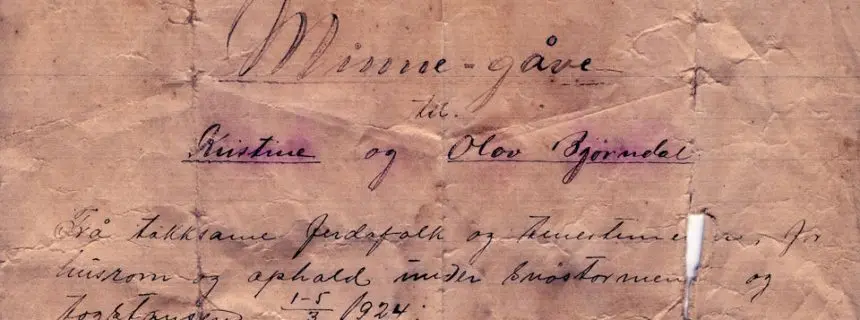 Minne-gåve
til.
Kristine og Olov Bjørndal
Frå takksame ferdafolk og tenestemenn, for
husrom og ophald under snöstormen og
togstansen 1-5/3 1924.